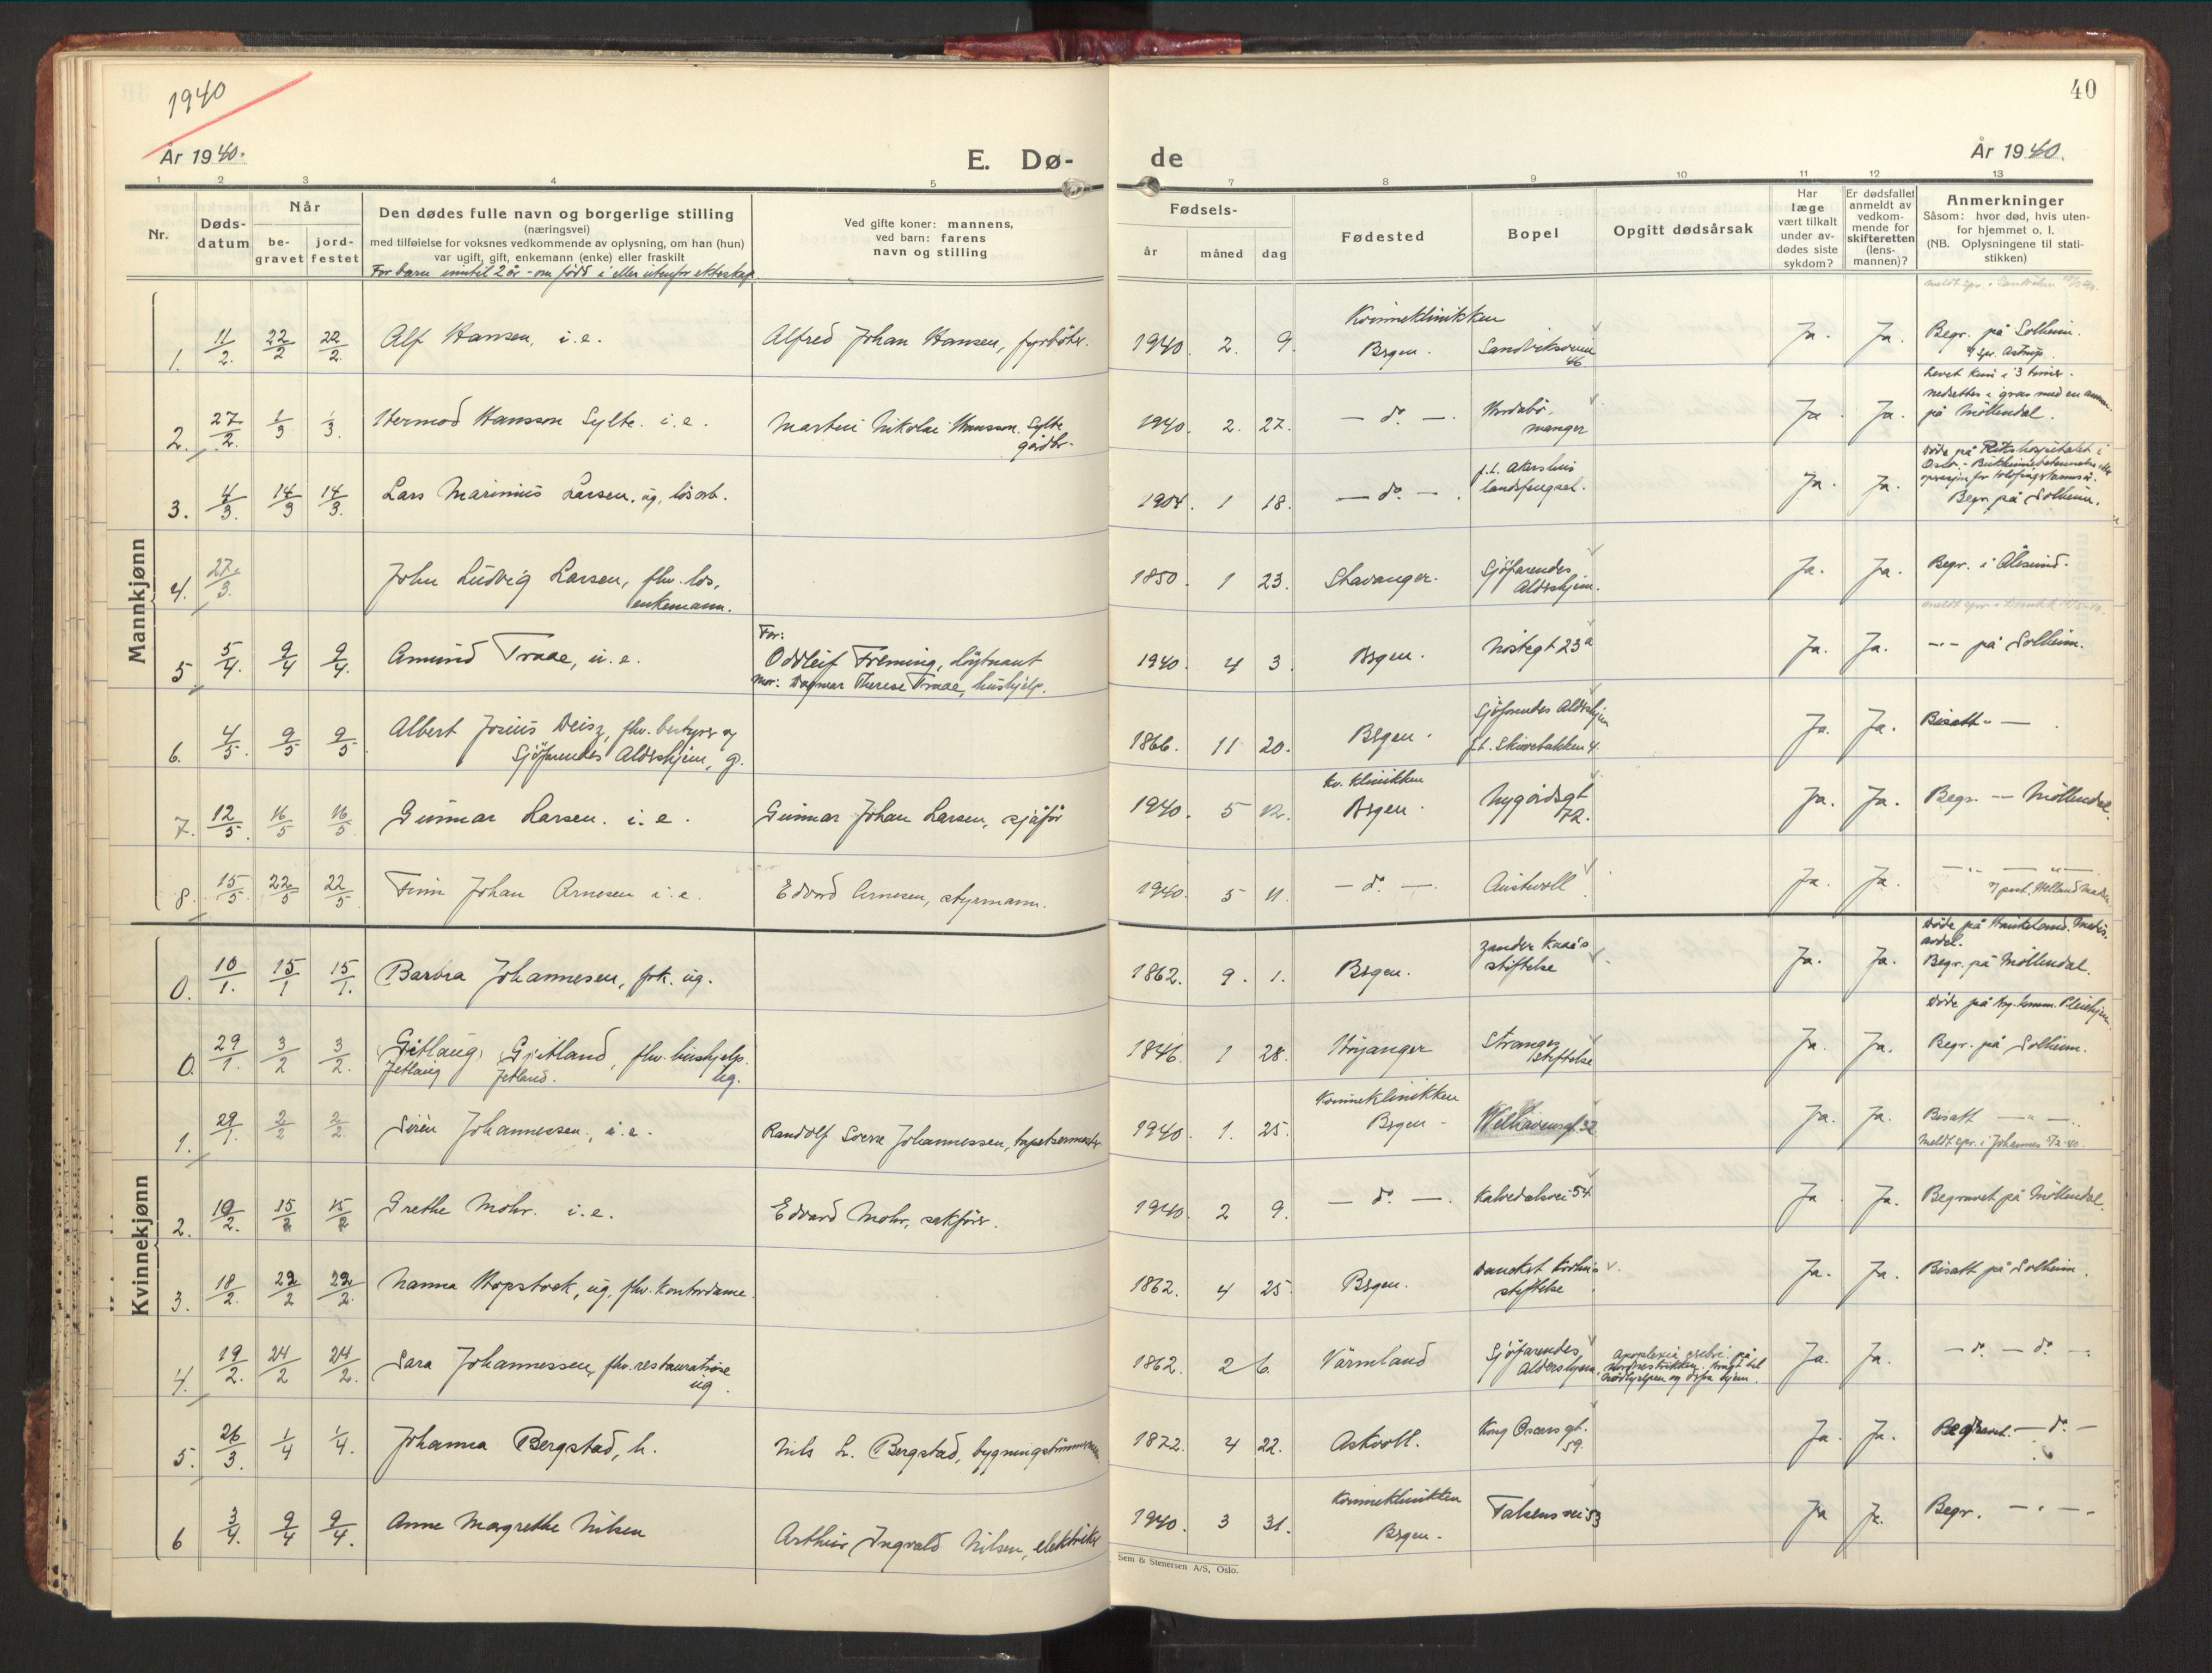 1940
År 1940.
E. Dø-
de
40
År 1940.
1 2 3 4 5 7 8 9 10 11 12 13
Nr.
Døds-
datum
Når
be-
gravet
jord-
festet
Den dødes fulle navn og borgerlige stilling
(næringsvei)
med tilføielse for voksnes vedkommende av oplysning, om han (hun)
var ugift, gift, enkemann (enke) eller fraskilt
For barn inntil 2 år - om født i eller utenfor ekteskap.
Ved gifte koner: mannens,
ved barn: farens
navn og stilling
Fødsels-
år måned dag
Fødested
Bopel
Opgitt dødsårsak
Har
læge
vært tilkalt
under av-
dødes siste
sykdom?
Er dødsfallet
anmeldt av
vedkom-
mende for
skifteretten
(lens-
mannen)?
Anmerkninger
Såsom: hvor død, hvis uten-
for hjemmet o. l.
(NB. Oplysningene til stati-
stikken)
Mannkjønn
1. 11/2. 22/2 22/2. Alf Hansen, i.e. Alfred Johan Hansen, fyrbøter. 1940. 2. 9. Kvinneklinikken
Bgen. Sandviksveien
46. Ja. Ja. Begr. på Solheim.
v/ spr. Astrup.
2. 27/2. 1/3 1/3. Hermod Hansson Sylte. i.e. Martin Nikolai Hansson Sylte
gårdbr. 1940. 2. 27. — do — Hordabø,
manger Ja. Ja. Levet kun i 3 timer.
nedsettes i grav med en annen
på Møllendal.
3. 4/3. 14/3 14/3. Lars Marinius Larsen, ug, løsarb. 1904. 1 18. — do — f.t. Akershus
landsfengsel. Ja. Ja. Døde på Rikshospitalet i
Oslo. - Bukhinnebetennelse efter
operasjon for
Begr. på Solheim.
4. 27/3. John Ludvig Larsen, fhv. los,
enkemann. 1850. 1 23. Stavanger. Sjøfarendes
Aldershjem. Ja. Ja. Begr. i Ålesund.
5. 5/4. 9/4 9/4. Amund Traae, u.e. Far:
Oddleif Fleming, løytnant
Mor: Dagmar Therese Traae, hushjelp. 1940. 4 3. Bgen. Nøstegt 23a Ja. Ja. —"— på Solheim.
6. 4/5. 9/5 9/5. Albert Josius Deisz, fhv. bestyrer av
Sjøfarendes Aldershjem, g. 1866. 11 20. Bgen. Sjøfarendes Aldershjem
f.t. Skivebakken 4. Ja. Ja. Bisatt — " —
7. 12/5. 16/5 16/5. Gunnar Larsen. i.e. Gunnar Johan Larsen, sjåfør 1940. 5 12. Kv. klinikken
Bgen. Nygårdsgt
72. Ja. Ja. Begr. — Møllendal.
8. 15/5. 22/5 22/5. Finn Johan Arnesen i.e. Edvard Arnesen, styrmann. 1940. 5 11. — do — Austevoll Ja. Ja. — " — " —
Kvinnekjønn
0. 10/1. 15/1 15/1. Barbra Johannesen, frk. ug. 1862. 9. 1. Bgen. Zander Kaaes
stiftelse Ja. Ja. Døde på Haukeland. Medis.
avdel.
Begr. på Møllendal.
0. 29/1. 3/2 3/2. Gitlaug Gjetland, fhv. hushjelp.
Jetlaug Jetland. ug. 1846. 1 28. Høyanger Stranges
Stiftelse Ja. Ja. Døde på komm. Pleiehjem.
Begr. på Solheim.
1. 29/1. 2/2 2/2. Siren Johannessen, i.e. Randolf Sverre Johannessen, tapetsermester 1940. 1. 25. Kvinneklinikken
Bgen. Welhavensgt 32 Ja. Ja. Bisatt — " —
Meldt spr. i Johannes 5/2-40.
2. 10/2. 15/2 15/2. Grethe Mohr. i.e. Edvard Mohr, sakfører. 1940. 2 9. — do — Kalvedalsvei 54 Ja. Ja. Begravet på Møllendal.
3. 18/2. 22/2 22/2. Nanna Hopstock, ug, fhv. kontordame. 1862. 4 25. Bgen. Danckert Krohns
stiftelse Ja. Ja. Bisatt på Solheim.
4. 19/2. 24/2 24/2. Sara Johannessen, fhv. restauratrise
ug. 1862. 2 6. Värmland Sjøfarendes
Aldershjem. Apoplexia cerebri på
bragt til
og derfra hjem. Ja. Ja. — do — do —
5. 26/3. 1/4 1/4. Johanna Bergstad, h. Nils L. Bergstad, bygningstømmermann. 1872. 4 22. Askvoll. Kong Oscars gt.
59. Ja. Ja. Begravet. — do —
6 3/4. 9/4 9/4. Anne Margrethe Nilsen Arthur Ingvald Nilsen, elektriker 1940. 3 31. Kvinneklinikken
Bgen. Falsens vei 53 Ja Ja. Begr. — " —
Sem & Stenersen A/S, Oslo.